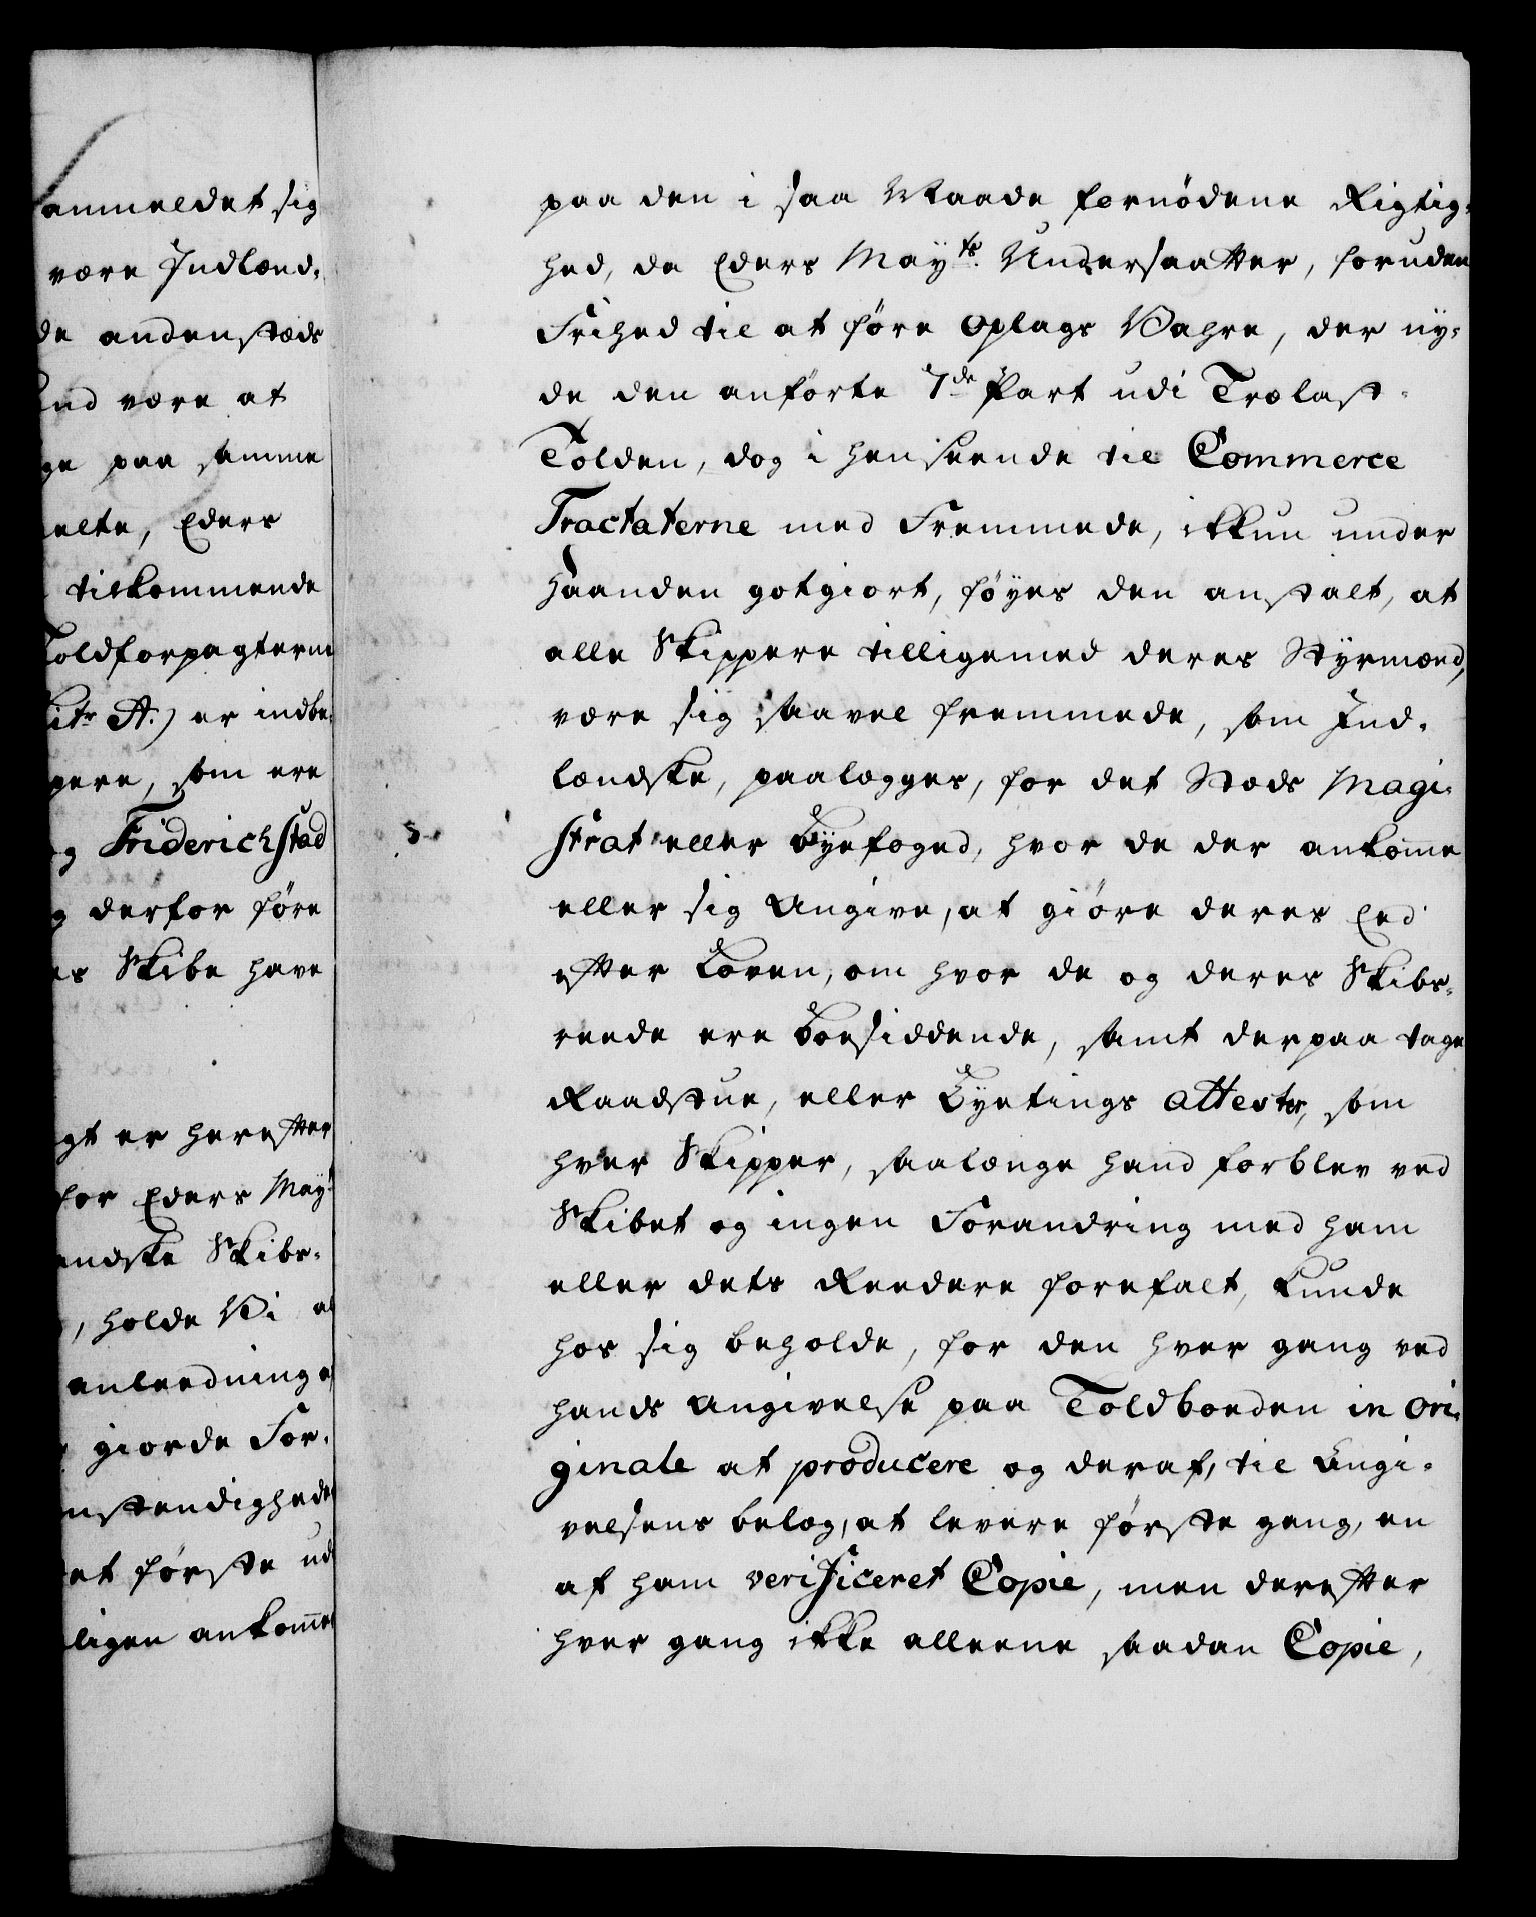 anmeldet sig
være Indlænd-
de andenstæds
end være at
ge paa samme
elte, Eders
tilkommende
Toldforpagterne
Litr A.) er indbe-
pere, som ere
og Friderichstad
og derfor føre
es Skibe have
gt er herefter
for Eders May
endske Skibs-
, holde Vi al
anleedning
giorde For-
mstendighede
et første ud
ligen ankomme
paa den i saa Maade fornødene Rigtig-
hed, da Eders Mayts. Undersaatter, foruden
Frihed til at føre Oplags Vahre, der ny-
de den anførte 7de Part udi Trælast-
Tolden, dog i henseende til Commerce
Tractaterne med Fremmede, ikkun under
Haanden gotgiort, føyes den anstalt, at
alle Skippere tilligemed deres Styrmænd,
være sig saavel fremmede, som Ind-
lændske, paalægges, for det Stæds Magi-
strat eller Byefoged, hvor de der ankome
eller sig angive, at giøre deres Eed
efter Loven, om hvor de og deres Skibs-
reede ere boesiddende, samt derpaa tage
Raadstue, eller Byetings Attester, som
hver Skipper, saalænge hand forblev ved
Skibet og ingen Forandring med ham
eller dets Reedere forefalt, kunde
hos sig beholde, for den hver gang ved
hands angivelse paa Toldboeden in ori-
ginale at producere og deraf, til Angi-
velsens belæg, at levere første gang, en
af ham verificeret Copie, men derefter
hver gang ikke alleene saadan Copie,